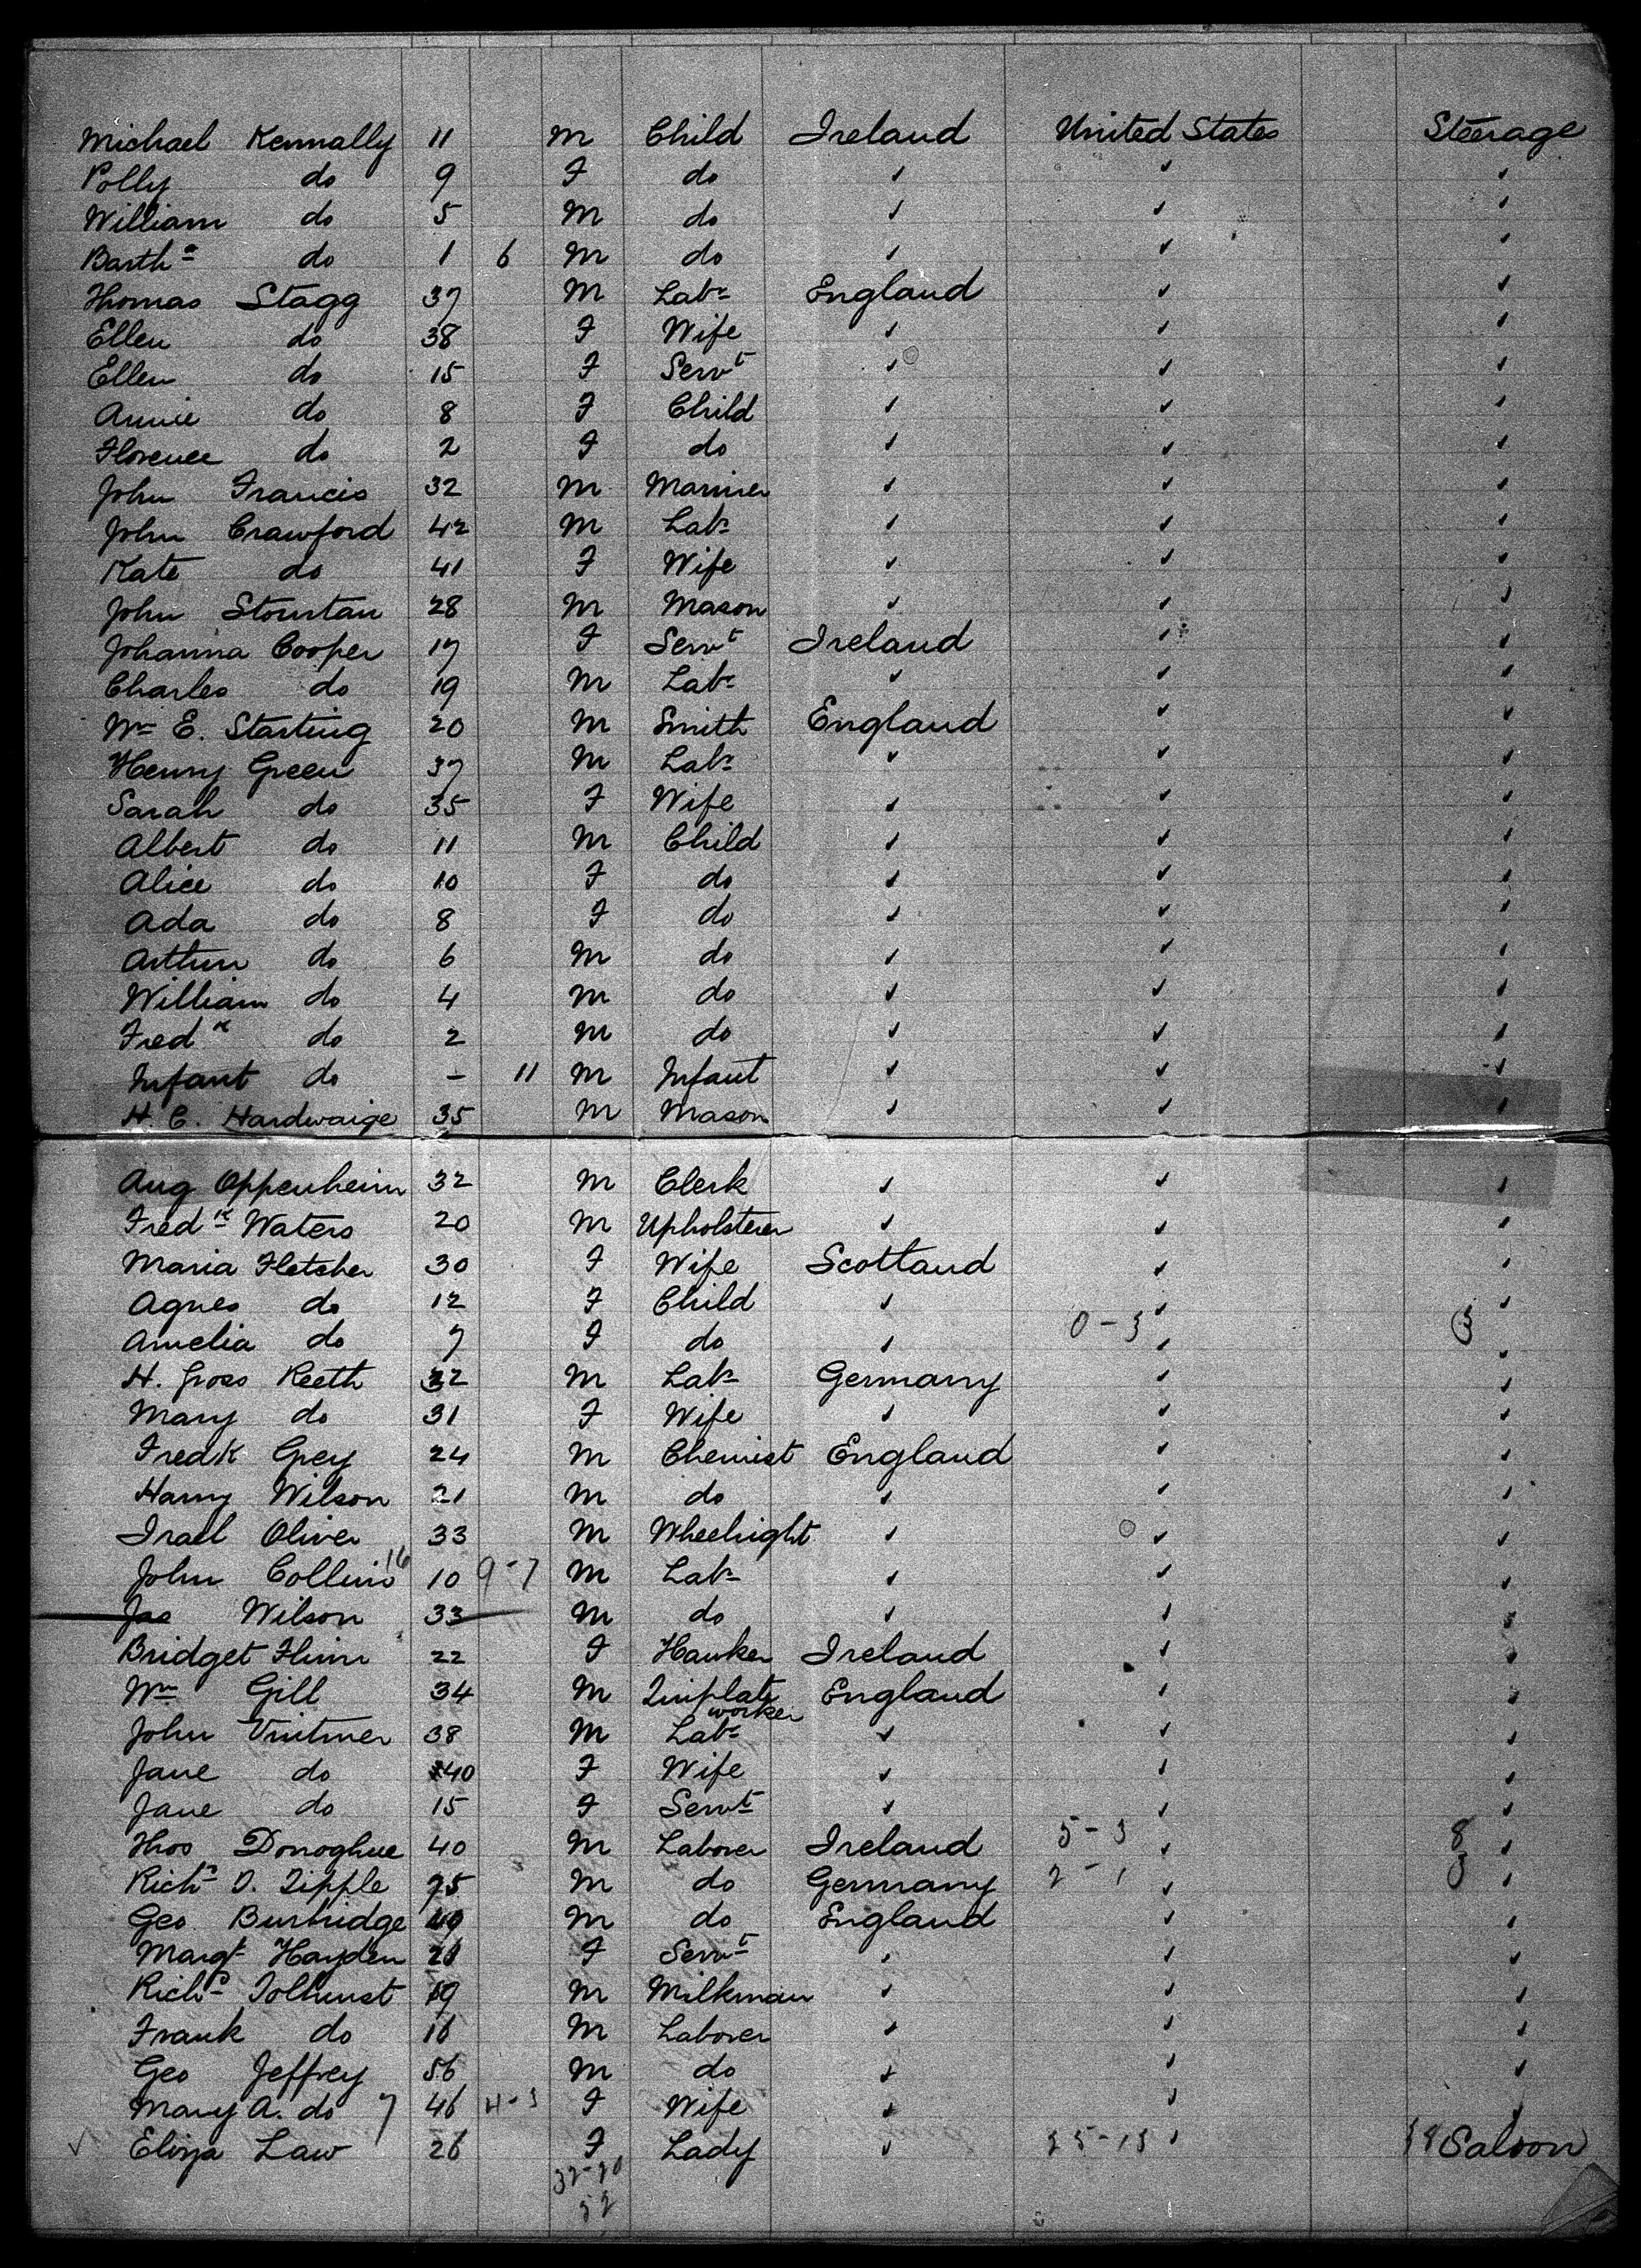 Michael Kennally 11 M Child Ireland United States Steerage
Polly do 9 F do ✓ ✓ ✓
William do 5 M do ✓ ✓ ✓
Barthw do 1 6 M do ✓ ✓ ✓
Thomas Stagg 37 M Labr England ✓ ✓
Ellen do 38 F Wife ✓ ✓ ✓
Ellen do 15 F Servt ✓ ✓ ✓
Annie do 8 F Child ✓ ✓ ✓
Florence do 2 F do ✓ ✓ ✓
John Francis 32 M Mariner ✓ ✓ ✓
John Crawford 42 M Labr ✓ ✓ ✓
Kate do 41 F Wife ✓ ✓ ✓
John Stourtan 28 M Mason ✓ ✓ ✓
Johanna Cooper 17 F Servt Ireland ✓ ✓
Charles do 19 M Labr ✓ ✓ ✓
Wm E. Starting 20 M Smith England ✓ ✓
Henry Green 37 M Labr ✓ ✓ ✓
Sarah do 35 F Wife ✓ ✓ ✓
Albert do 11 M Child ✓ ✓ ✓
Alice do 10 F do ✓ ✓ ✓
Ada do 8 F do ✓ ✓ ✓
Arthur do 6 M do ✓ ✓ ✓
William do 4 M do ✓ ✓ ✓
Fredk do 2 M do ✓ ✓ ✓
Infant do - 11 M Infant ✓ ✓ ✓
H. C. Hardwaige 35 M Mason ✓ ✓ ✓
Aug Oppenheim 32 M Clerk ✓ ✓ ✓
Fredk Waters 20 M Upholsterer ✓ ✓ ✓
Maria Fletcher 30 F Wife Scotland ✓ ✓
Agnes do 12 F Child ✓ ✓ ✓
Amelia do 7 F do ✓ 0-3 ✓ 3 ✓
H. Gross Keeth 32 M Labr Germany ✓ ✓
Mary do 31 F Wife ✓ ✓ ✓
Fredk Grey 24 M Chemist England ✓ ✓
Harry Wilson 21 M do ✓ ✓ ✓
Irael Oliver 33 M Wheelright ✓ ✓ ✓
John Collins 16 10 9-7 M Labr ✓ ✓ ✓
Jas Wilson 33 M do ✓ ✓ ✓
Bridget Flinn 22 F Hawker Ireland ✓ ✓
Wm Gill 34 M Tinplate worker England ✓ ✓
John 38 M Labr ✓ ✓ ✓
Jane do 40 F Wife ✓ ✓ ✓
Jane do 15 F Servt ✓ ✓ ✓
Thos Donoghue 40 M Laborer Ireland 5-3 ✓ 8 ✓
Richd D. Tipple 75 M do Germany 2-1 ✓ 3 ✓
Geo Burbridge 49 M do England ✓ ✓
Margt Hayden 21 F Servt ✓ ✓ ✓
Richd Tolhurst 19 M Milkman ✓ ✓ ✓
Frank do 16 M Laborer ✓ ✓ ✓
Geo Jeffrey 56 M do ✓ ✓ ✓
Mary A. do 7 46 4-3 F Wife ✓ ✓ ✓
✓ Eliza Law 26 F Lady ✓ ✓ Saloon
32-20
52